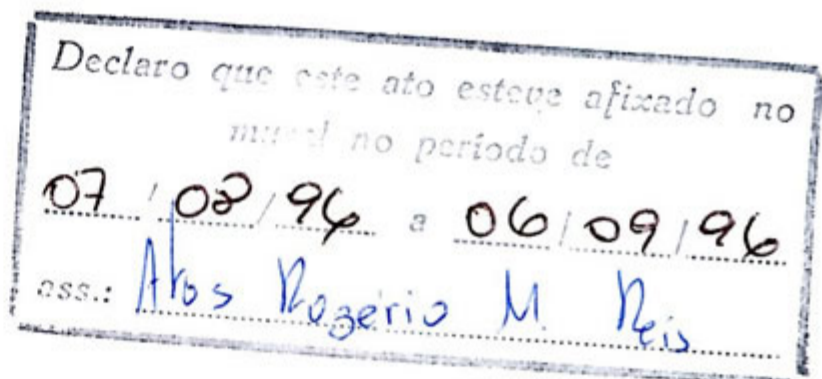 Declaro que este ato esteve afixado no
mural no período de
07 / 08 / 96 a 06 / 09 / 96
ass.: Atos Rogério M. Reis